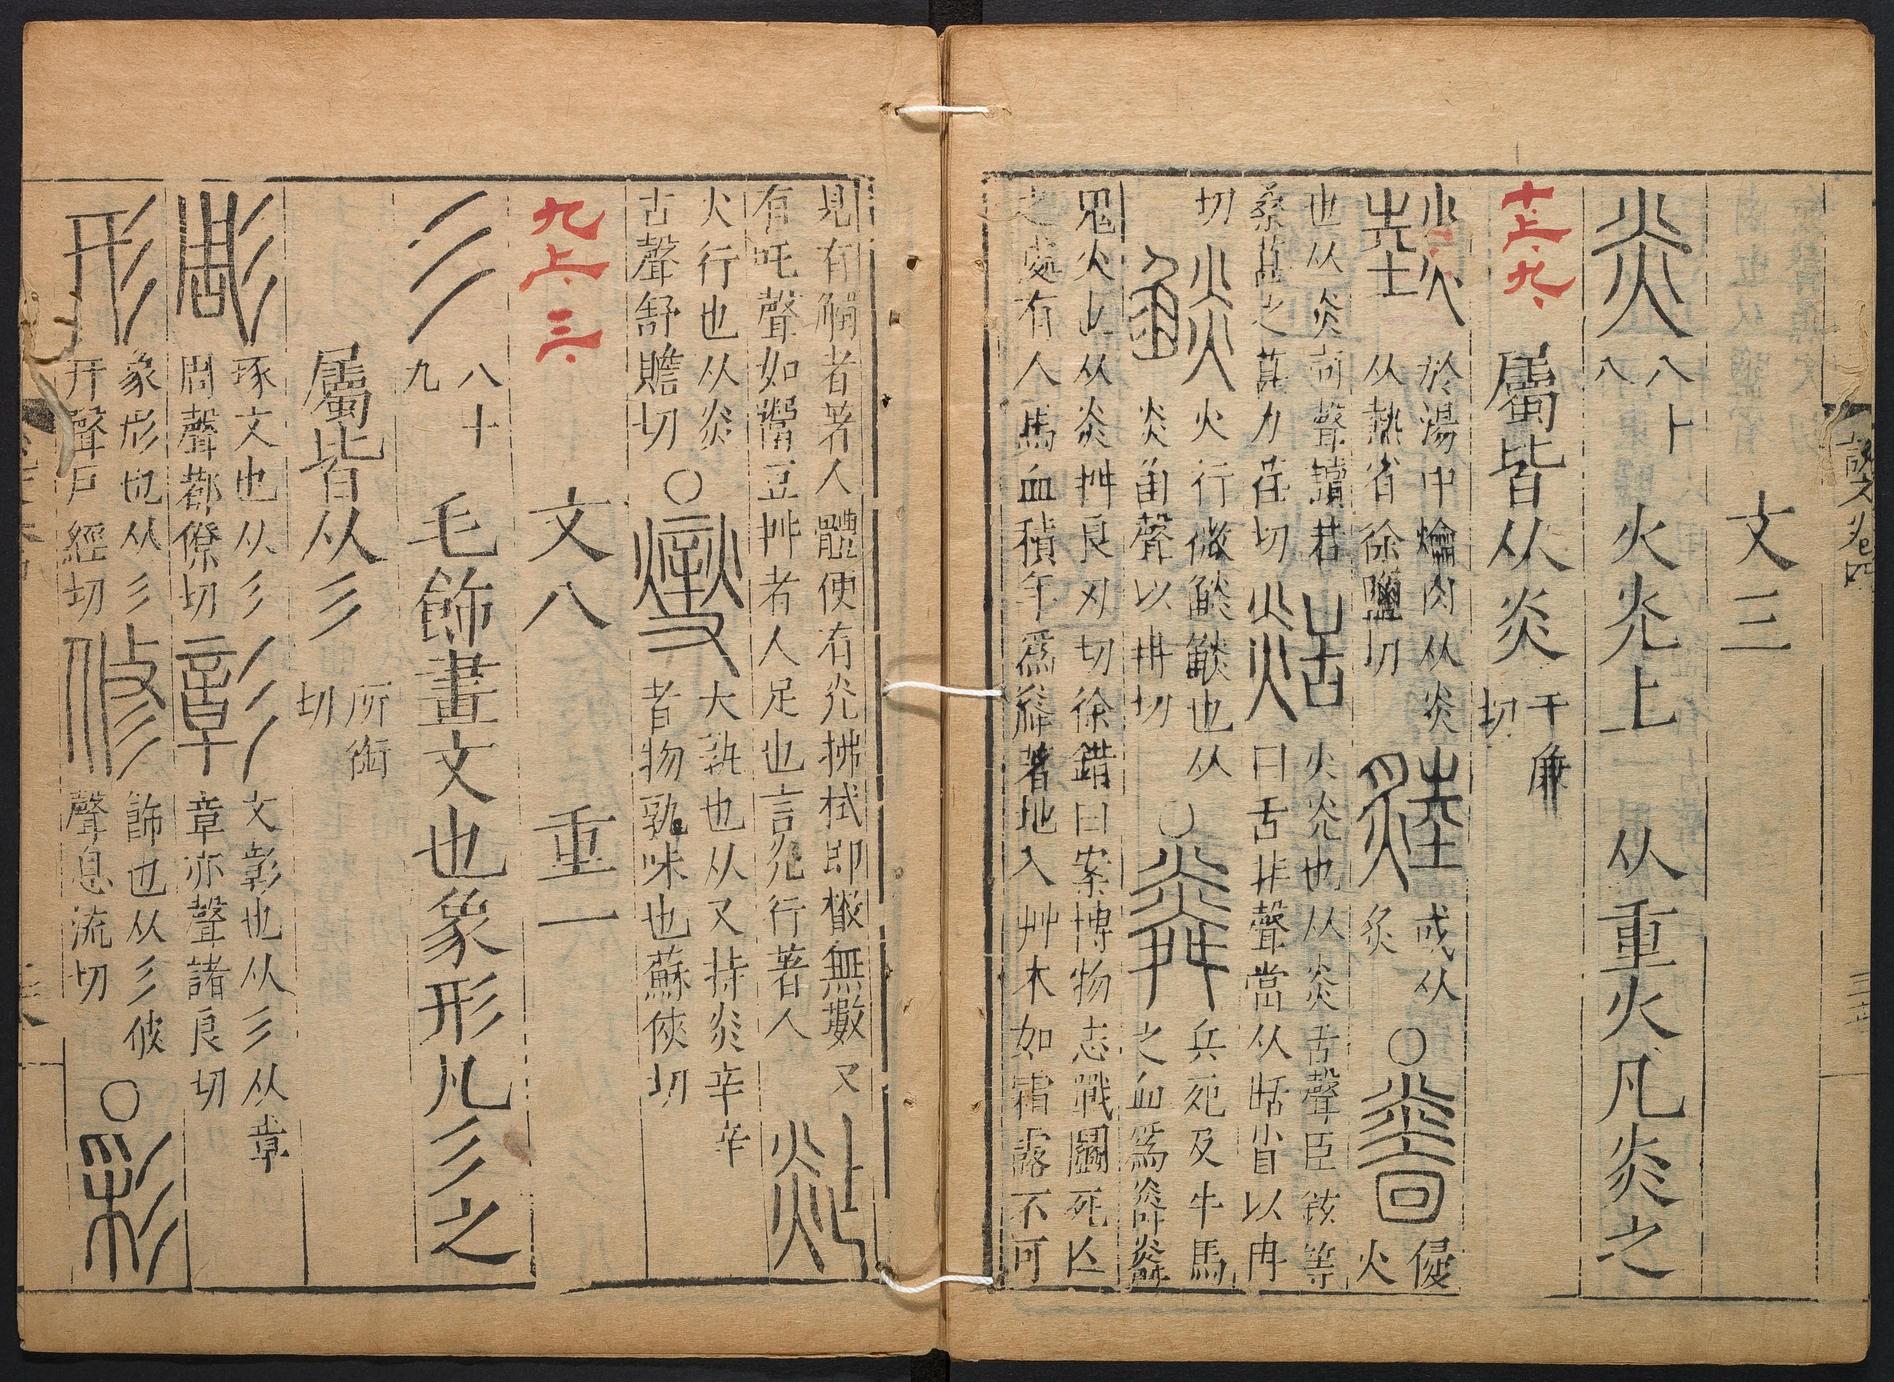 文三
炎
八十
八
火光上
从重火凡炎之
十上、九、
屬皆从炎
于廉
切
燅
於湯中爚肉从炎
从熱省徐鹽切
𤐤
或从
炙
○
㷭
侵
火
也从炎㐭聲讀若
桑葚之葚力荏切
𤊟
火光也从炎舌聲臣鉉等
曰舌非聲當从甛省以冉
切
燄
火行微燄燄也从
炎臽聲以冉切
○
粦
兵死及牛馬
之血爲粦粦
鬼火也从炎舛良刃切徐鍇曰案博物志戰鬭死亾
之處有人馬血積年爲粦著地入艸木如霜露不可
見有觸者著人體便有光拂拭即散無數又
有吒聲如鬻豆舛者人足也言光行著人
㷔
火行也从炎
占聲舒贍切
○
燮
大孰也从又持炎辛辛
者物孰味也蘇俠切
九上、三、
文八
重一
彡
八十
九
毛飾畫文也象形凡彡之
屬皆从彡
所銜
切
彫
琢文也从彡
周聲都僚切
彰
文彰也从彡从章
章亦聲諸良切
形
象形也从彡
幵聲戶經切
修
飾也从彡攸
聲息流切
○
彩